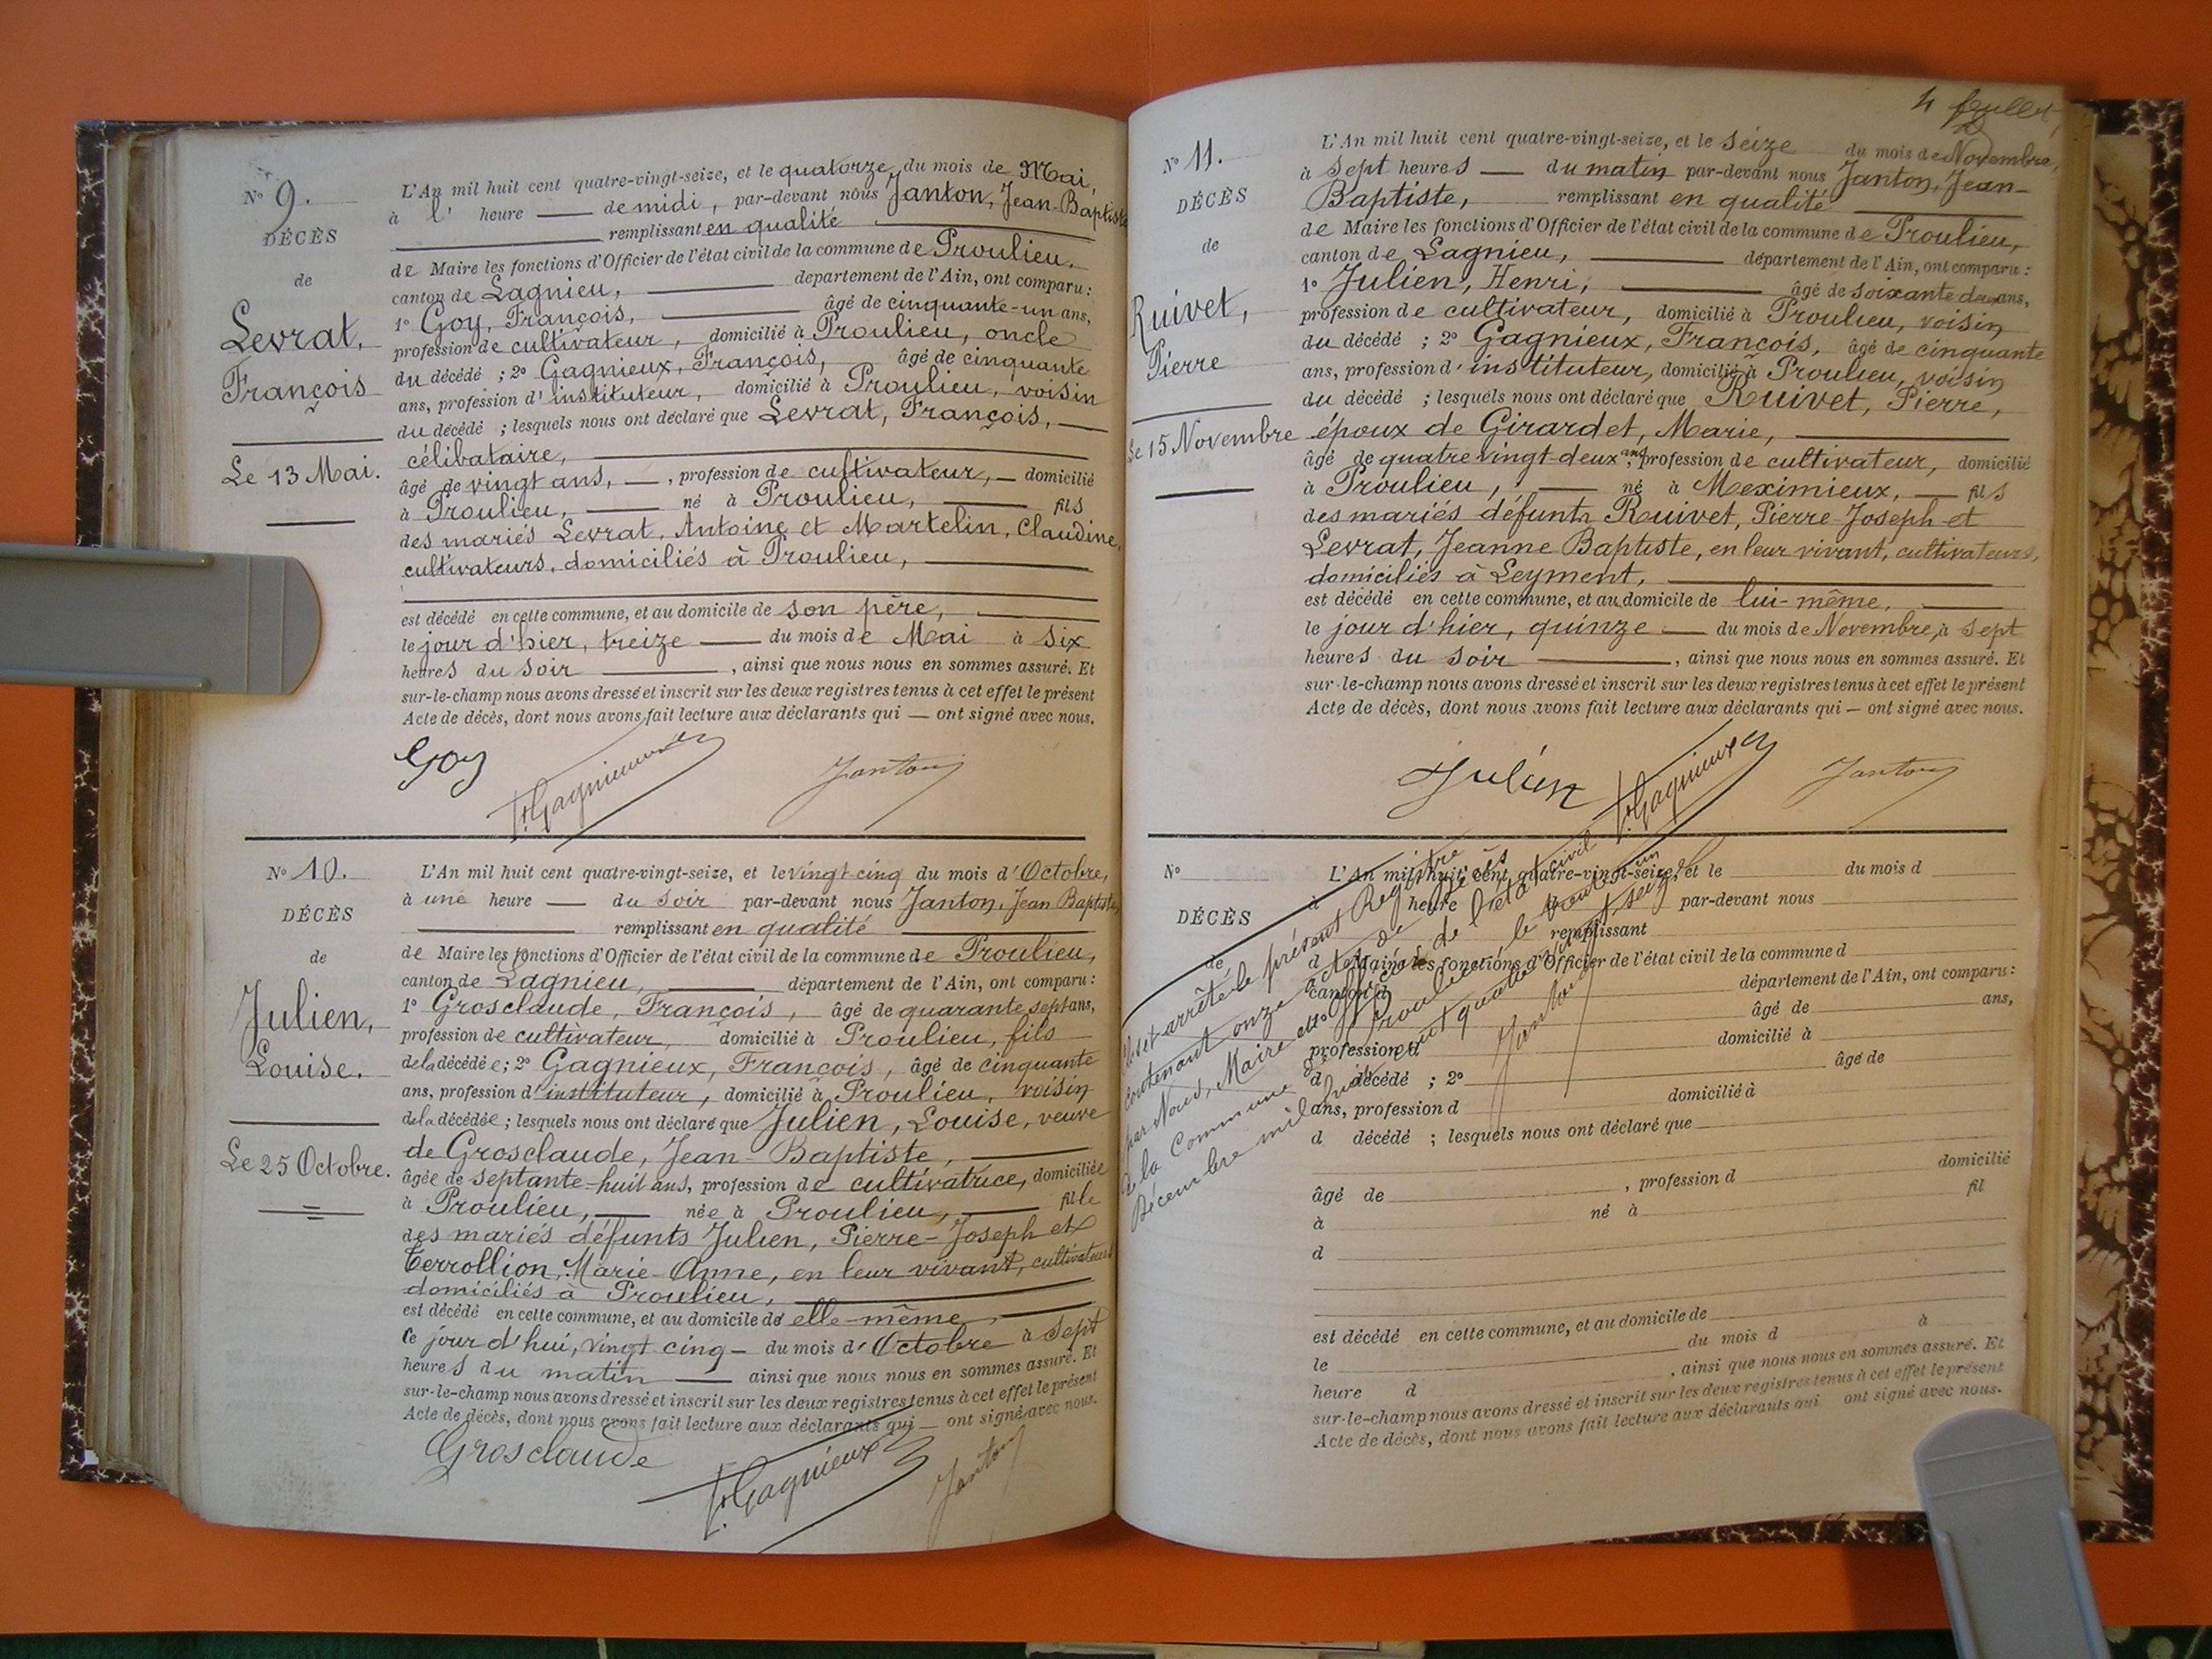 N° 9.
DÉCÈS
de
Levrat,
François
Le 13 Mai.
L'An mil huit cent quatre-vingt-seize, et le quatorze, du mois de Mai,
à l' heure — de midi, par-devant nous Janton, Jean-Baptiste
remplissant en qualité
de Maire les fonctions d'Officier de l'état civil de la commune de Proulieu,
canton de Lagnieu, — département de l'Ain, ont comparu :
1° Goy, François, — âgé de cinquante-un ans,
profession de cultivateur, domicilié à Proulieu, oncle
du décédé ; 2° Gagnieux, François, âgé de cinquante
ans, profession d'instituteur, domicilié à Proulieu, voisin
du décédé ; lesquels nous ont déclaré que Levrat, François, —
célibataire, —
âgé de vingt ans, —, profession de cultivateur, — domicilié
à Proulieu, — né à Proulieu, — fils
des mariés Levrat, Antoine et Martelin, Claudine,
cultivateurs, domiciliés à Proulieu, —
est décédé en cette commune, et au domicile de son père, —
le jour d'hier, treize — du mois de Mai à six
heures du soir —, ainsi que nous nous en sommes assuré. Et
sur-le-champ nous avons dressé et inscrit sur les deux registres tenus à cet effet le présent
Acte de décès, dont nous avons fait lecture aux déclarants qui — ont signé avec nous.
Goy F. Gagnieux Janton
N° 10.
DÉCÈS
de
Julien,
Louise.
Le 25 Octobre.
L'An mil huit cent quatre-vingt-seize, et le vingt cinq du mois d'Octobre,
à une heure — du soir par-devant nous Janton, Jean Baptiste,
remplissant en qualité
de Maire les fonctions d'Officier de l'état civil de la commune de Proulieu,
canton de Lagnieu, — département de l'Ain, ont comparu :
1° Grosclaude, François, âgé de quarante sept ans,
profession de cultivateur, domicilié à Proulieu, fils
de la décédée ; 2° Gagnieux, François, âgé de cinquante
ans, profession d'instituteur, domicilié à Proulieu, voisin
de la décédée ; lesquels nous ont déclaré que Julien, Louise, veuve
de Grosclaude, Jean-Baptiste, —
âgée de septante-huit ans, profession de cultivatrice, domiciliée
à Proulieu, — née à Proulieu, — fille
des mariés défunts Julien, Pierre-Joseph et
Terrollion, Marie-Anne, en leur vivant, cultivateurs
domiciliés à Proulieu, —
est décédé en cette commune, et au domicile de elle-même, —
ce jour d'hui, vingt cinq — du mois d'Octobre à sept
heures du matin — ainsi que nous nous en sommes assuré. Et
sur-le-champ nous avons dressé et inscrit sur les deux registres tenus à cet effet le présent
Acte de décès, dont nous avons fait lecture aux déclarants qui — ont signé avec nous.
Grosclaude F. Gagnieux Janton
4
N° 11.
DÉCÈS
de
Ruivet,
Pierre
Le 15 Novembre
L'An mil huit cent quatre-vingt-seize, et le seize du mois de Novembre,
à sept heures — du matin par-devant nous Janton, Jean-
Baptiste, remplissant en qualité
de Maire les fonctions d'Officier de l'état civil de la commune de Proulieu,
canton de Lagnieu, — département de l'Ain, ont comparu :
1° Julien, Henri, — âgé de soixante deux ans,
profession de cultivateur, domicilié à Proulieu, voisin
du décédé ; 2° Gagnieux, François, âgé de cinquante
ans, profession d'instituteur, domicilié à Proulieu, voisin
du décédé ; lesquels nous ont déclaré que Ruivet, Pierre,
époux de Girardet, Marie, —
âgé de quatre vingt-deux ans, profession de cultivateur, domicilié
à Proulieu, — né à Meximieux, — fils
des mariés défunts Ruivet, Pierre-Joseph et
Levrat, Jeanne Baptiste, en leur vivant, cultivateurs,
domiciliés à Leyment, —
est décédé en cette commune, et au domicile de lui-même, —
le jour d'hier, quinze — du mois de Novembre, à sept
heures du soir —, ainsi que nous nous en sommes assuré. Et
sur-le-champ nous avons dressé et inscrit sur les deux registres tenus à cet effet le présent
Acte de décès, dont nous avons fait lecture aux déclarants qui — ont signé avec nous.
Julien F. Gagnieux Janton
N°
DÉCÈS
de
L'An mil huit cent quatre-vingt-seize, et le du mois d
à heure par-devant nous
remplissant
d Maire les fonctions d'Officier de l'état civil de la commune d
canton d département de l'Ain, ont comparu :
âgé de ans,
profession d domicilié à
d décédé ; 2° âgé de
ans, profession d domicilié à
d décédé ; lesquels nous ont déclaré que
âgé de , profession d domicilié
à né à fil
d
est décédé en cette commune, et au domicile de
le du mois d à
heure d , ainsi que nous nous en sommes assuré. Et
sur-le-champ nous avons dressé et inscrit sur les deux registres tenus à cet effet le présent
Acte de décès, dont nous avons fait lecture aux déclarants qui ont signé avec nous.
arrêté le présent Registre
contenant onze actes de décès
par Nous, Maire et Officier de l'état civil
de la Commune de Proulieu, le trente un
Décembre mil huit cent quatre vingt seize
Janton